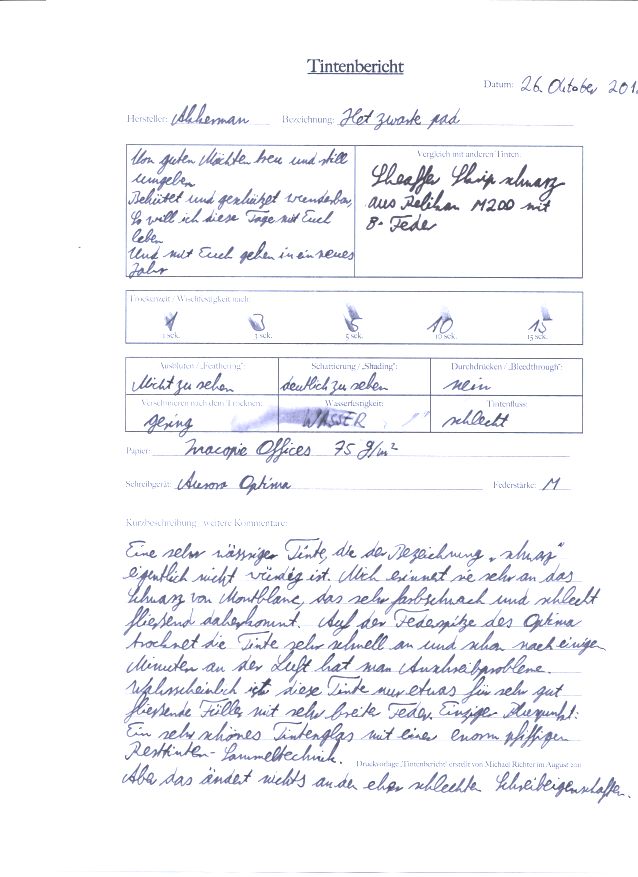 Tintenbericht
Datum: 26. Oktober 201
Hersteller: Akkerman Bezeichnung: Het zwarte pad
Von guten Mächten treu und still
umgeben
Behütet und geschützt wunderbar,
So will ich diese Tage mit Euch
leben
Und mit Euch gehen in ein neues
Jahr
Vergleich mit anderen Tinten:
Sheaffer Skrip schwarz
aus Pelikan M200 mit
B-Feder
Trockenzeit / Wischfestigkeit nach:
1 3 5 10 15
1 sek. 3 sek. 5 sek. 10 sek. 15 sek.
Ausbluten / „Feathering": Schattierung / „Shading": Durchdrücken / „Bleedthrough":
Nicht zu sehen deutlich zu sehen nein
Verschmieren nach dem Trocknen: Wasserfestigkeit: Tintenfluss:
gering WASSER schlecht
Papier: Inacopia Offices 75 g/m²
Schreibgerät: Aurora Optima Federstärke: M
Kurzbeschreibung / weitere Kommentare:
Eine sehr wässrige Tinte, die der Bezeichnung „schwarz"
eigentlich nicht würdig ist. Mich erinnert sie sehr an das
Schwarz von Montblanc, das sehr farbschwach und schlecht
fließend daherkommt. Auf der Federspitze des Optima
trocknet die Tinte sehr schnell an und schon nach einigen
Minuten an der Luft hat man Anschreibprobleme.
Wahrscheinlich ist diese Tinte nur etwas für sehr gut
fließende Füller mit sehr breiter Feder. Einziger Pluspunkt:
Ein sehr schönes Tintenglas mit einer enorm pfiffigen
Resttinten-Sammeltechnik.
Druckvorlage „Tintenbericht" erstellt von Michael Richter im August 2011
Aber das ändert nichts an den eher schlechten Schreibeigenschaften.